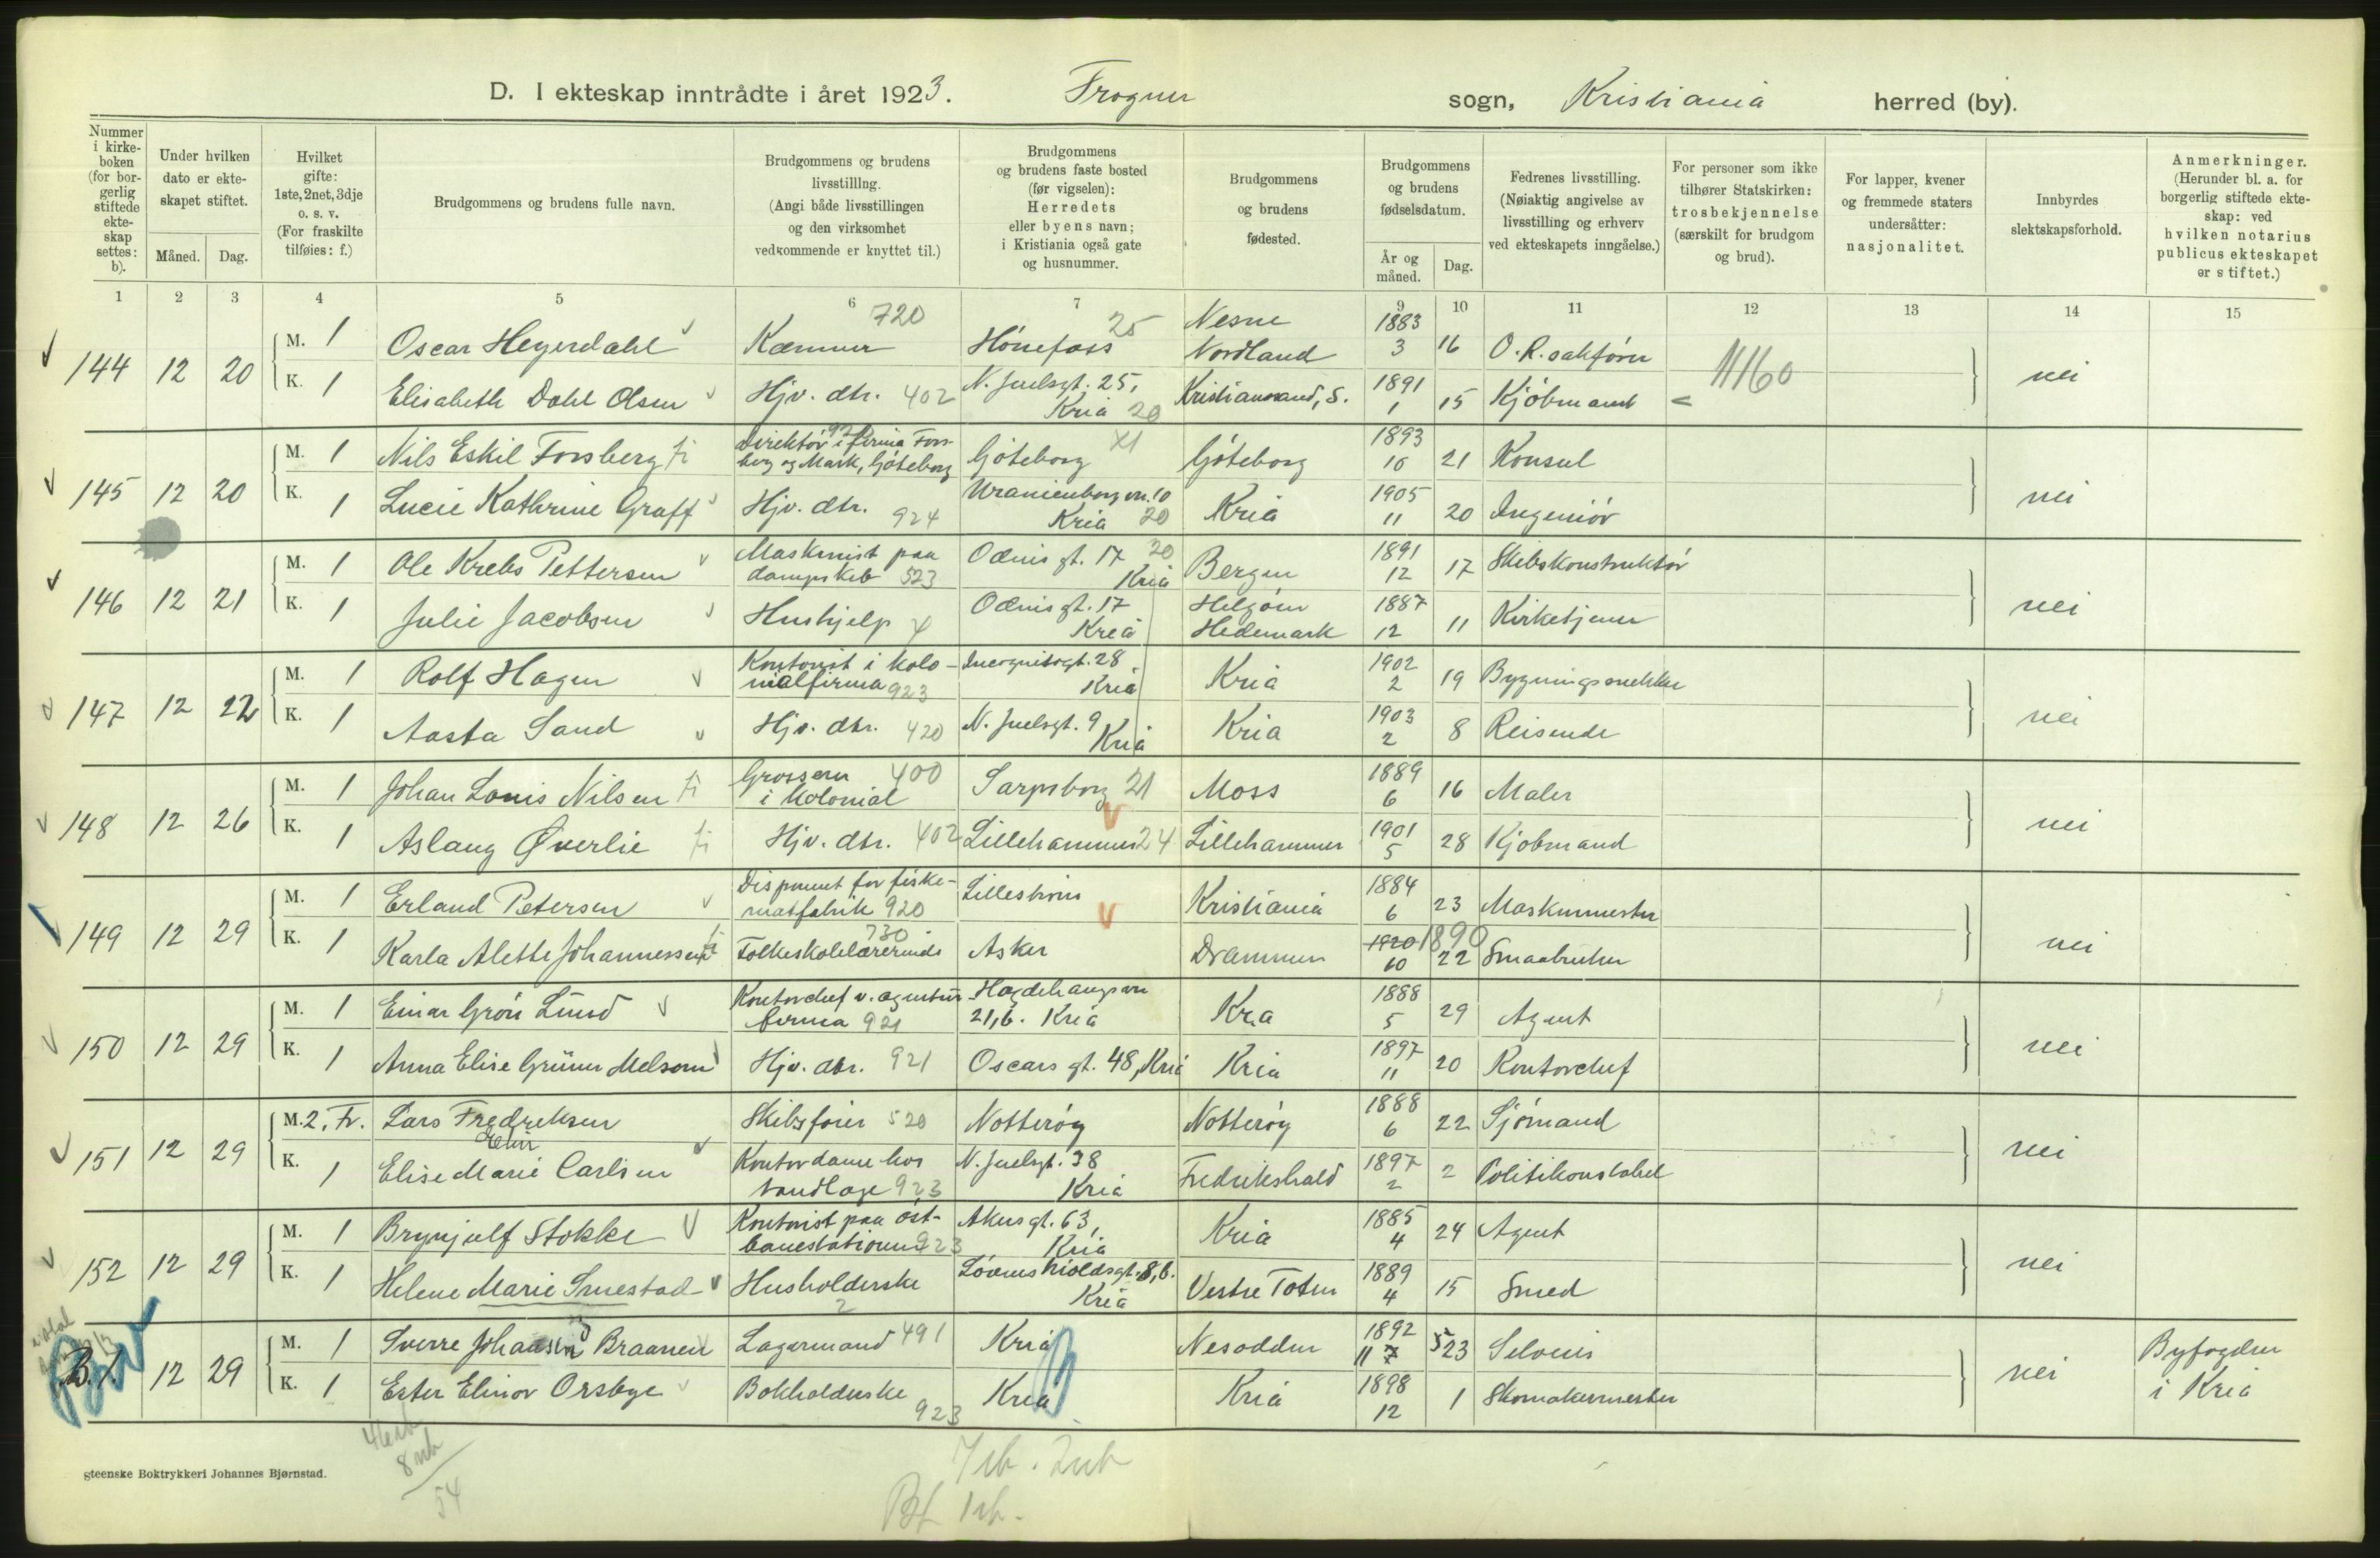 D. I ekteskap inntrådte i året 1923. Frogner sogn, Kristiania herred (by).
Nummer i kirkeboken (for borgerlig stiftede ekteskap settes: b).
Under hvilken dato er ekteskapet stiftet.
Måned. Dag.
Hvilket gifte: 1ste, 2net, 3dje o. s. v. (For fraskilte tilføies: f.)
Brudgommens og brudens fulle navn.
Brudgommens og brudens livsstilling. (Angi både livsstillingen og den virksomhet vedkommende er knyttet til.)
Brudgommens og brudens faste bosted (før vigselen): Herredets eller byens navn; i Kristiania også gate og husnummer.
Brudgommens og brudens fødested.
Brudgommens og brudens fødselsdatum.
År og måned. Dag.
Fedrenes livsstilling. (Nøiaktig angivelse av livsstilling og erhverv ved ekteskapets inngåelse.)
For personer som ikke tilhører Statskirken: trosbekjennelse (særskilt for brudgom og brud).
For lapper, kvener og fremmede staters undersåtter: nasjonalitet.
Innbyrdes slektskapsforhold.
Anmerkninger. (Herunder bl. a. for borgerlig stiftede ekteskap: ved hvilken notarius publicus ekteskapet er stiftet.)
1 2 3 4 5 6 7 9 10 11 12 13 14 15
144 12 20 M. 1 Oscar Heyerdahl Kæmner 720 Hönefoss 25 Nesne Nordland 1883 3 16 O.R.sakförer 11160 nei
K. 1 Elisabeth Dahl Olsen Hjv. dtr. 402 N. Juelsgt. 25, Kria 20 Kristiansand, S. 1891 1 15 Kjöbmand
145 12 20 M. 1 Nils Eskil Forsberg Direktör i firma Forsberg og Mark, Göteborg Göteborg Göteborg 1893 10 21 Konsul nei
K. 1 Lucie Kathrine Graff Hjv. dtr. 924 Uranienborgvn. 10 Kria 20 Kria 1905 11 20 Ingeniör
146 12 21 M. 1 Ole Krebs Pettersen Maskinist paa dampskib 523 Odinsgt. 17 20 Kria Bergen 1891 12 17 Skibskonstruktör nei
K. 1 Julie Jacobsen Hushjelp Odinsgt. 17 Kria Helgöen Hedemark 1887 12 11 Kirketjener
147 12 22 M. 1 Rolf Hagen Kontorist i kolonialfirma 923 Incognitogt. 28 Kria Kria 1902 2 19 Bygningssnekker nei
K. 1 Aasta Sand Hjv. dtr. 420 N. Juelsgt. 9 Kria Kria 1903 2 8 Reisende
148 12 26 M. 1 Johan Louis Nilsen Grosserer i kolonial 400 Sarpsborg 21 Moss 1889 6 16 Maler nei
K. 1 Aslaug Øverlie Hjv. dtr. 402 Lillehammer 24 Lillehammer 1901 5 28 Kjöbmand
149 12 29 M. 1 Erland Petersen Disponent for fiskematfabrik 920 Lilleström Kristiania 1884 6 23 Maskinmester nei
K. 1 Karla Alette Johannessen Folkeskolelærerinde 730 Asker Drammen 1920 1890 10 22 Smaabruker
150 12 29 M. 1 Einar Grön Lund Kontorchef v. agenturfirma 921 Hagdehaugsvn 21, b. Kria Kria 1888 5 29 Agent nei
K. 1 Anna Elise Grüner Melsom Hjv. dtr. 921 Oscars gt. 48, Kria Kria 1897 11 20 Kontorchef
151 12 29 M. 2, Fr. Lars Fredriksen Skibsförer 520 Nötteröy Nötteröy 1888 6 22 Sjömand nei
K. 1 Elise Marie Carlsen Kontordame hos tandlæge 923 N. Juelsgt. 38 Kria Fredrikshald 1897 2 2 Politikonstabel
152 12 29 M. 1 Brynjulf Stokke Kontorist paa östbanestationen 923 Akersgt. 63, Kria Kria 1885 4 24 Agent nei
K. 1 Helene Marie Smestad Husholderske 2 Lövenskioldsgt. 8, b. Kria Vestre Toten 1889 4 15 Smed
B. 1. 12 29 M. 1 Sverre Johansen Braanen Lagermand 491 Kria Nesodden 1892 11 7 23 Selveier nei Byfogden i Kria
K. 1 Ester Elinor Orsbye Bokholderske 923 Kria Kria 1898 12 1 Skomakermester
8 ub
54
7 ib. 2 ub
Bf. 1 ib.
steenske Boktrykkeri Johannes Bjørnstad.